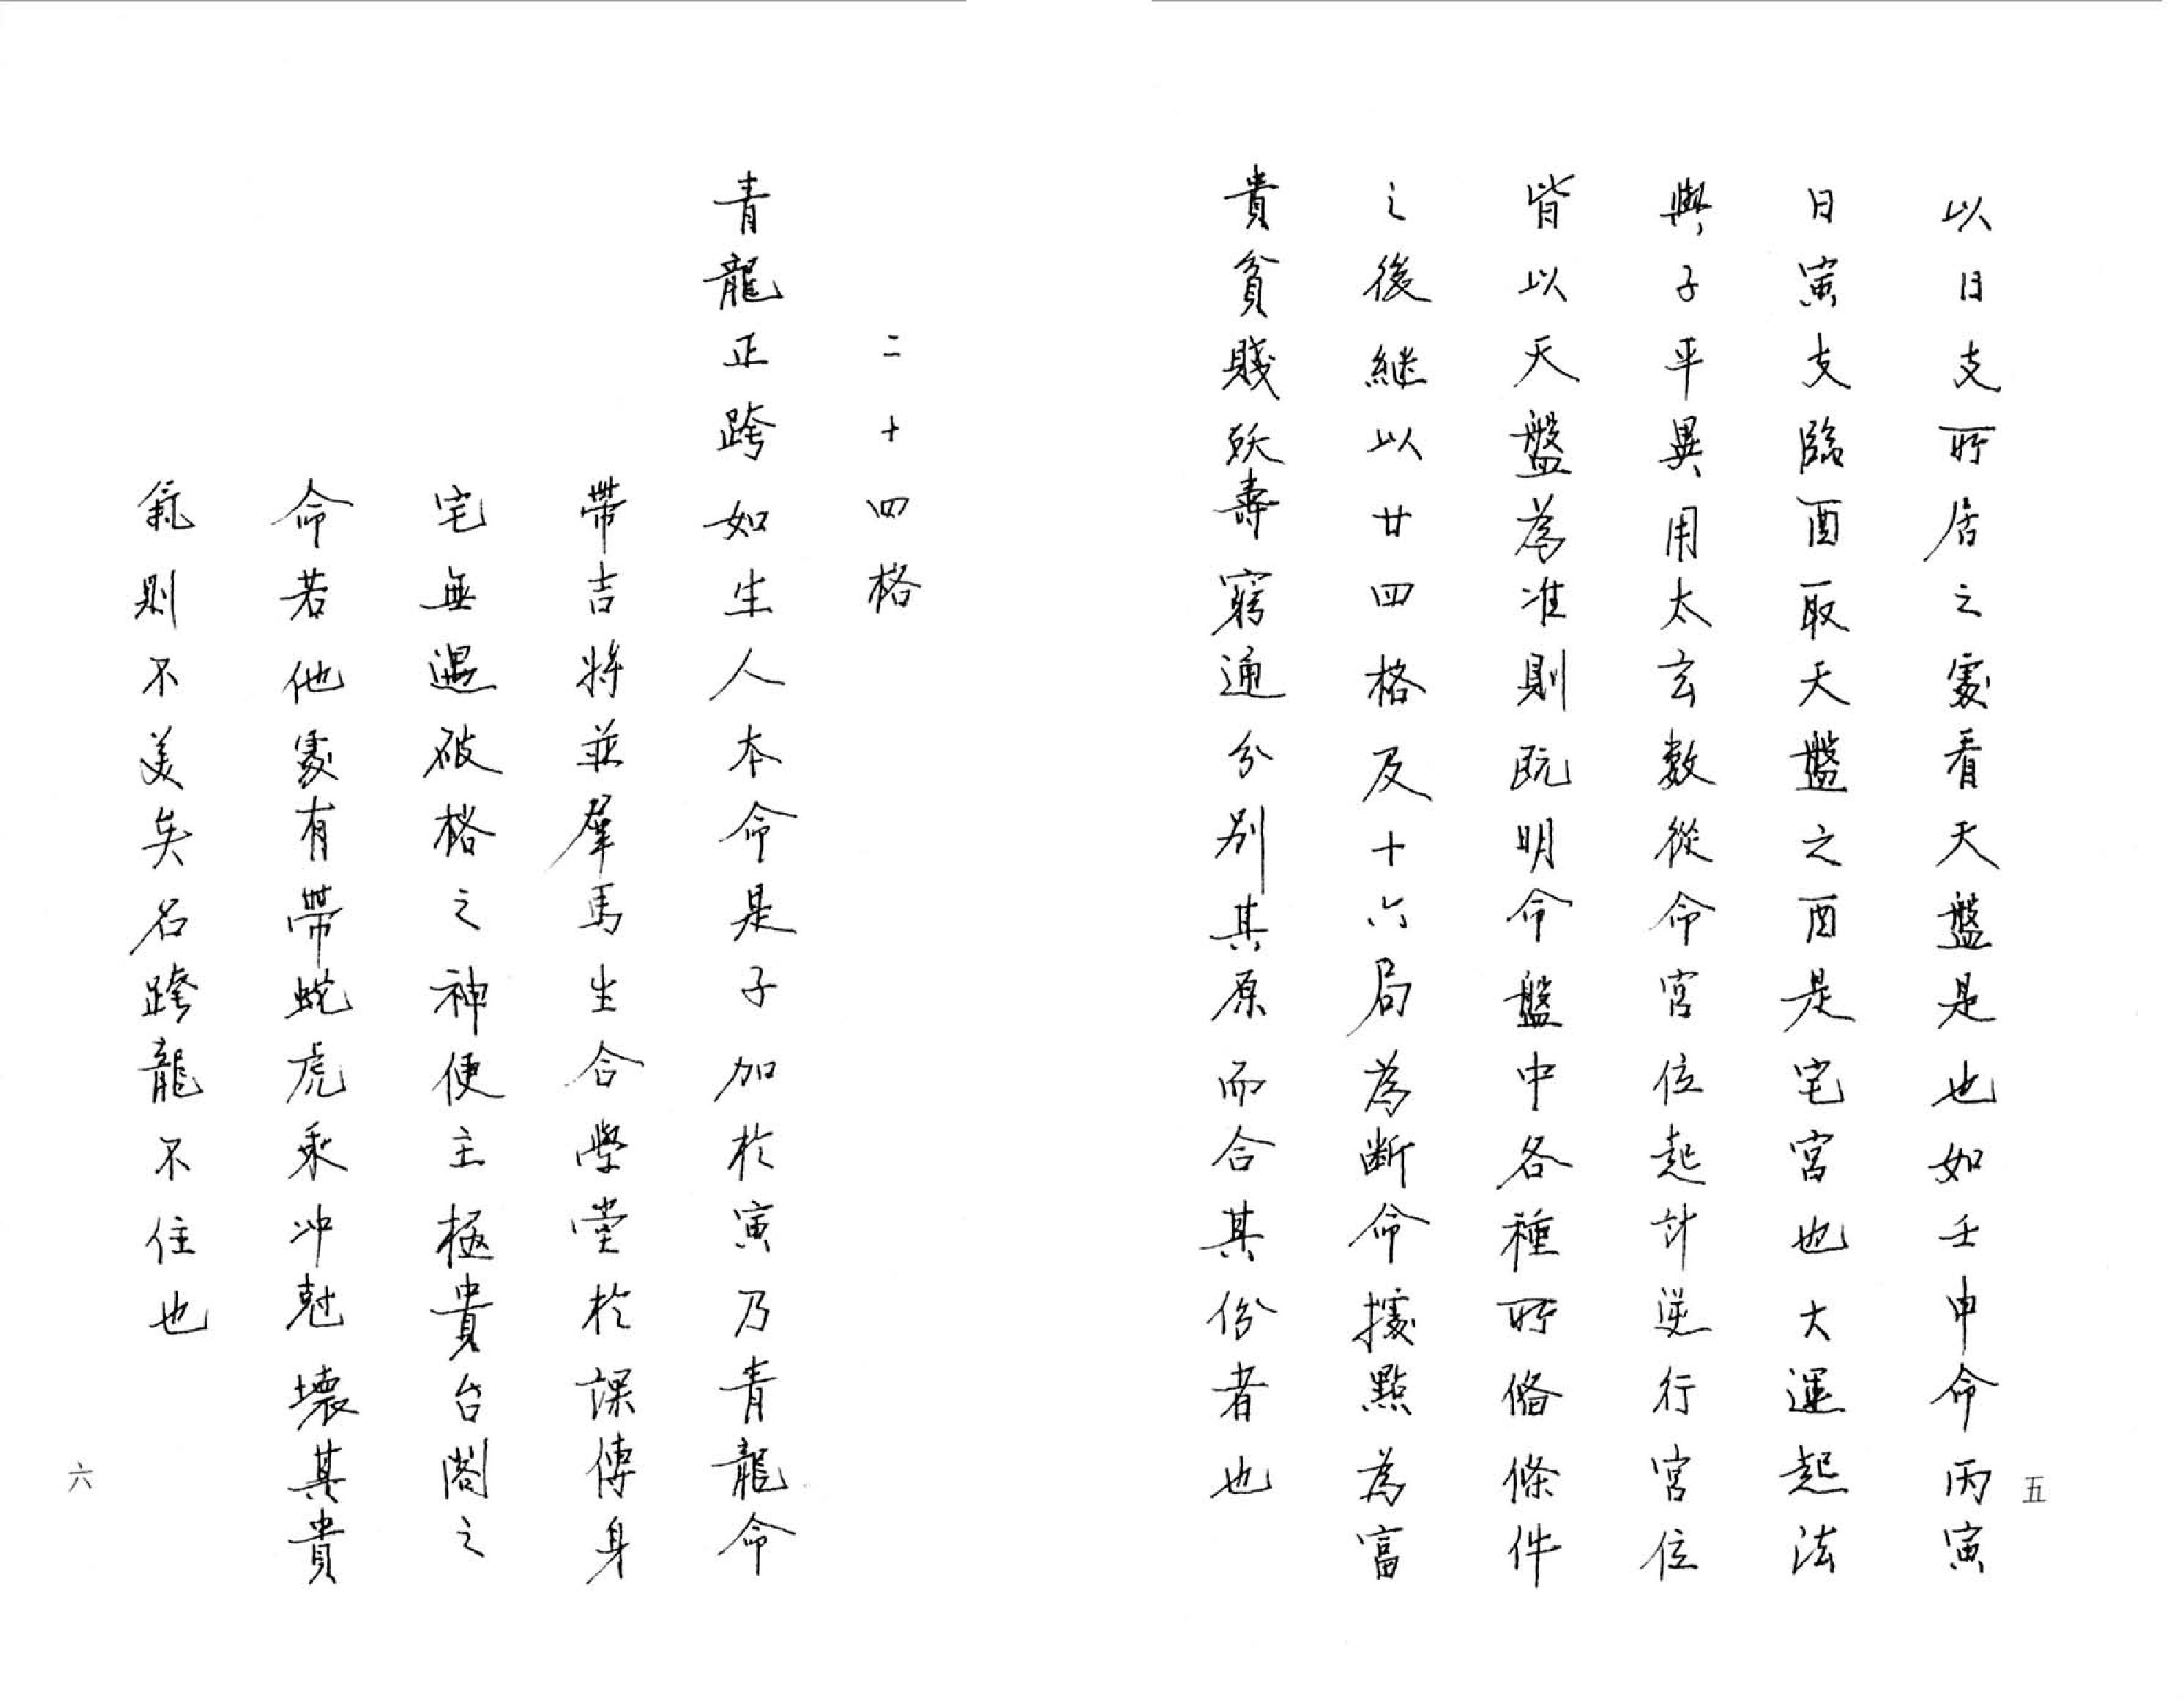 以日支所居之處看天盤是也如壬申命丙寅
日寅支臨酉取天盤之酉是宅宮也大運起法
與子平異用太玄數從命宮位起計逆行宮位
皆以天盤為准則既明命盤中各種所俻條件
之後継以廿四格及十六局為断命據點為富
貴貧賤殀壽窮通分別其原而合其份者也
五
二十四格
青龍正跨如生人本命是子加於寅乃青龍命
帶吉將並羣馬生合學堂於課傳身
宅無遇破格之神便主極貴台閣之
命若他處有帶蛇虎乘冲尅壞其貴
氣則不美矣名跨龍不住也
六